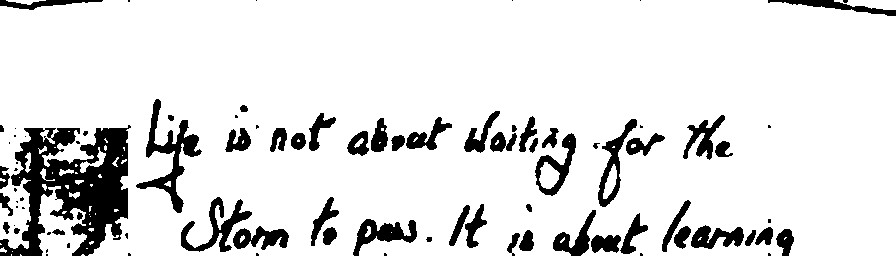 Life is not about waiting for the
Storm to pass. It is about learning